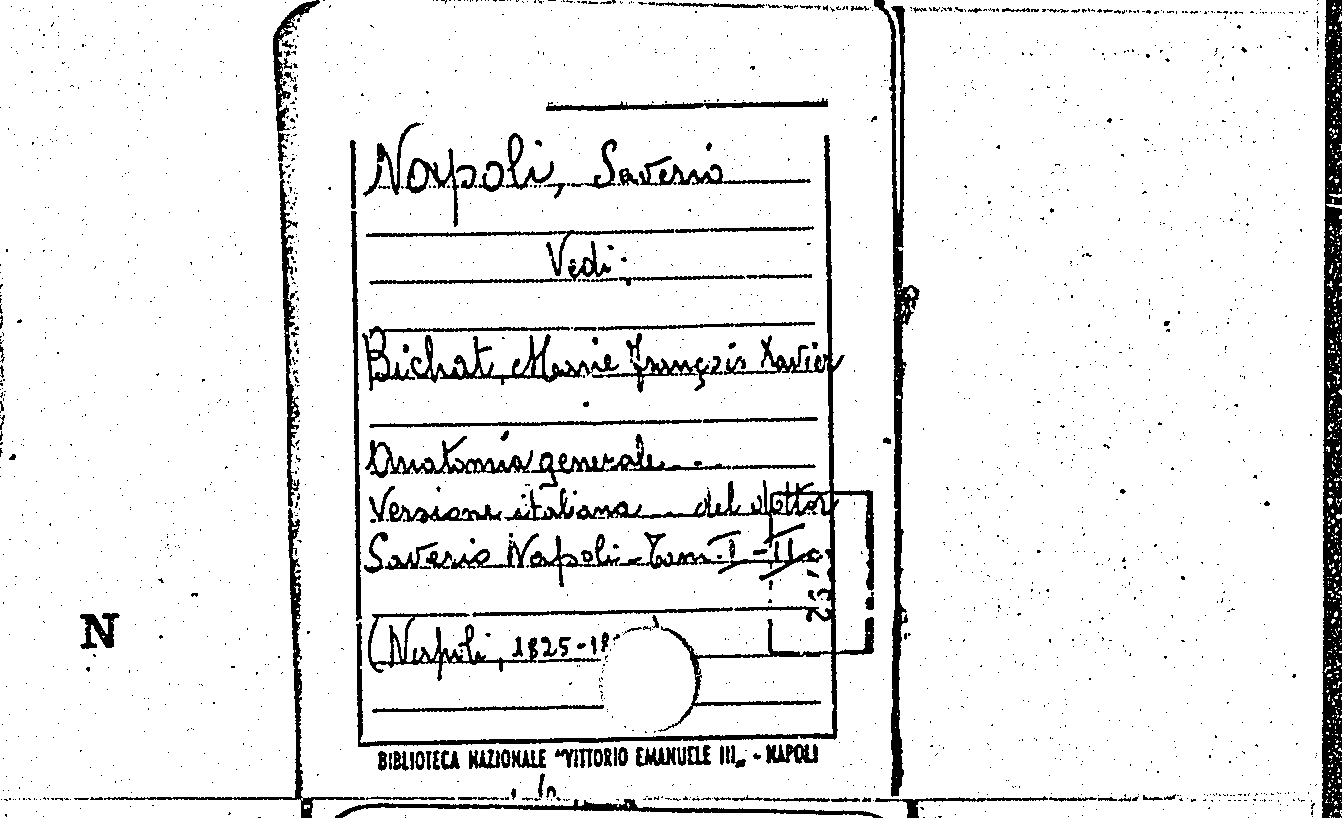 Napoli, Saverio
Vedi:
Bichat, Marie François Xavier
Anatomia generale...
Versione italiana... del dottor
Saverio Napoli - Tom. I - II
(Napoli, 1825-18
N
BIBLIOTECA NAZIONALE "VITTORIO EMANUELE III" - NAPOLI